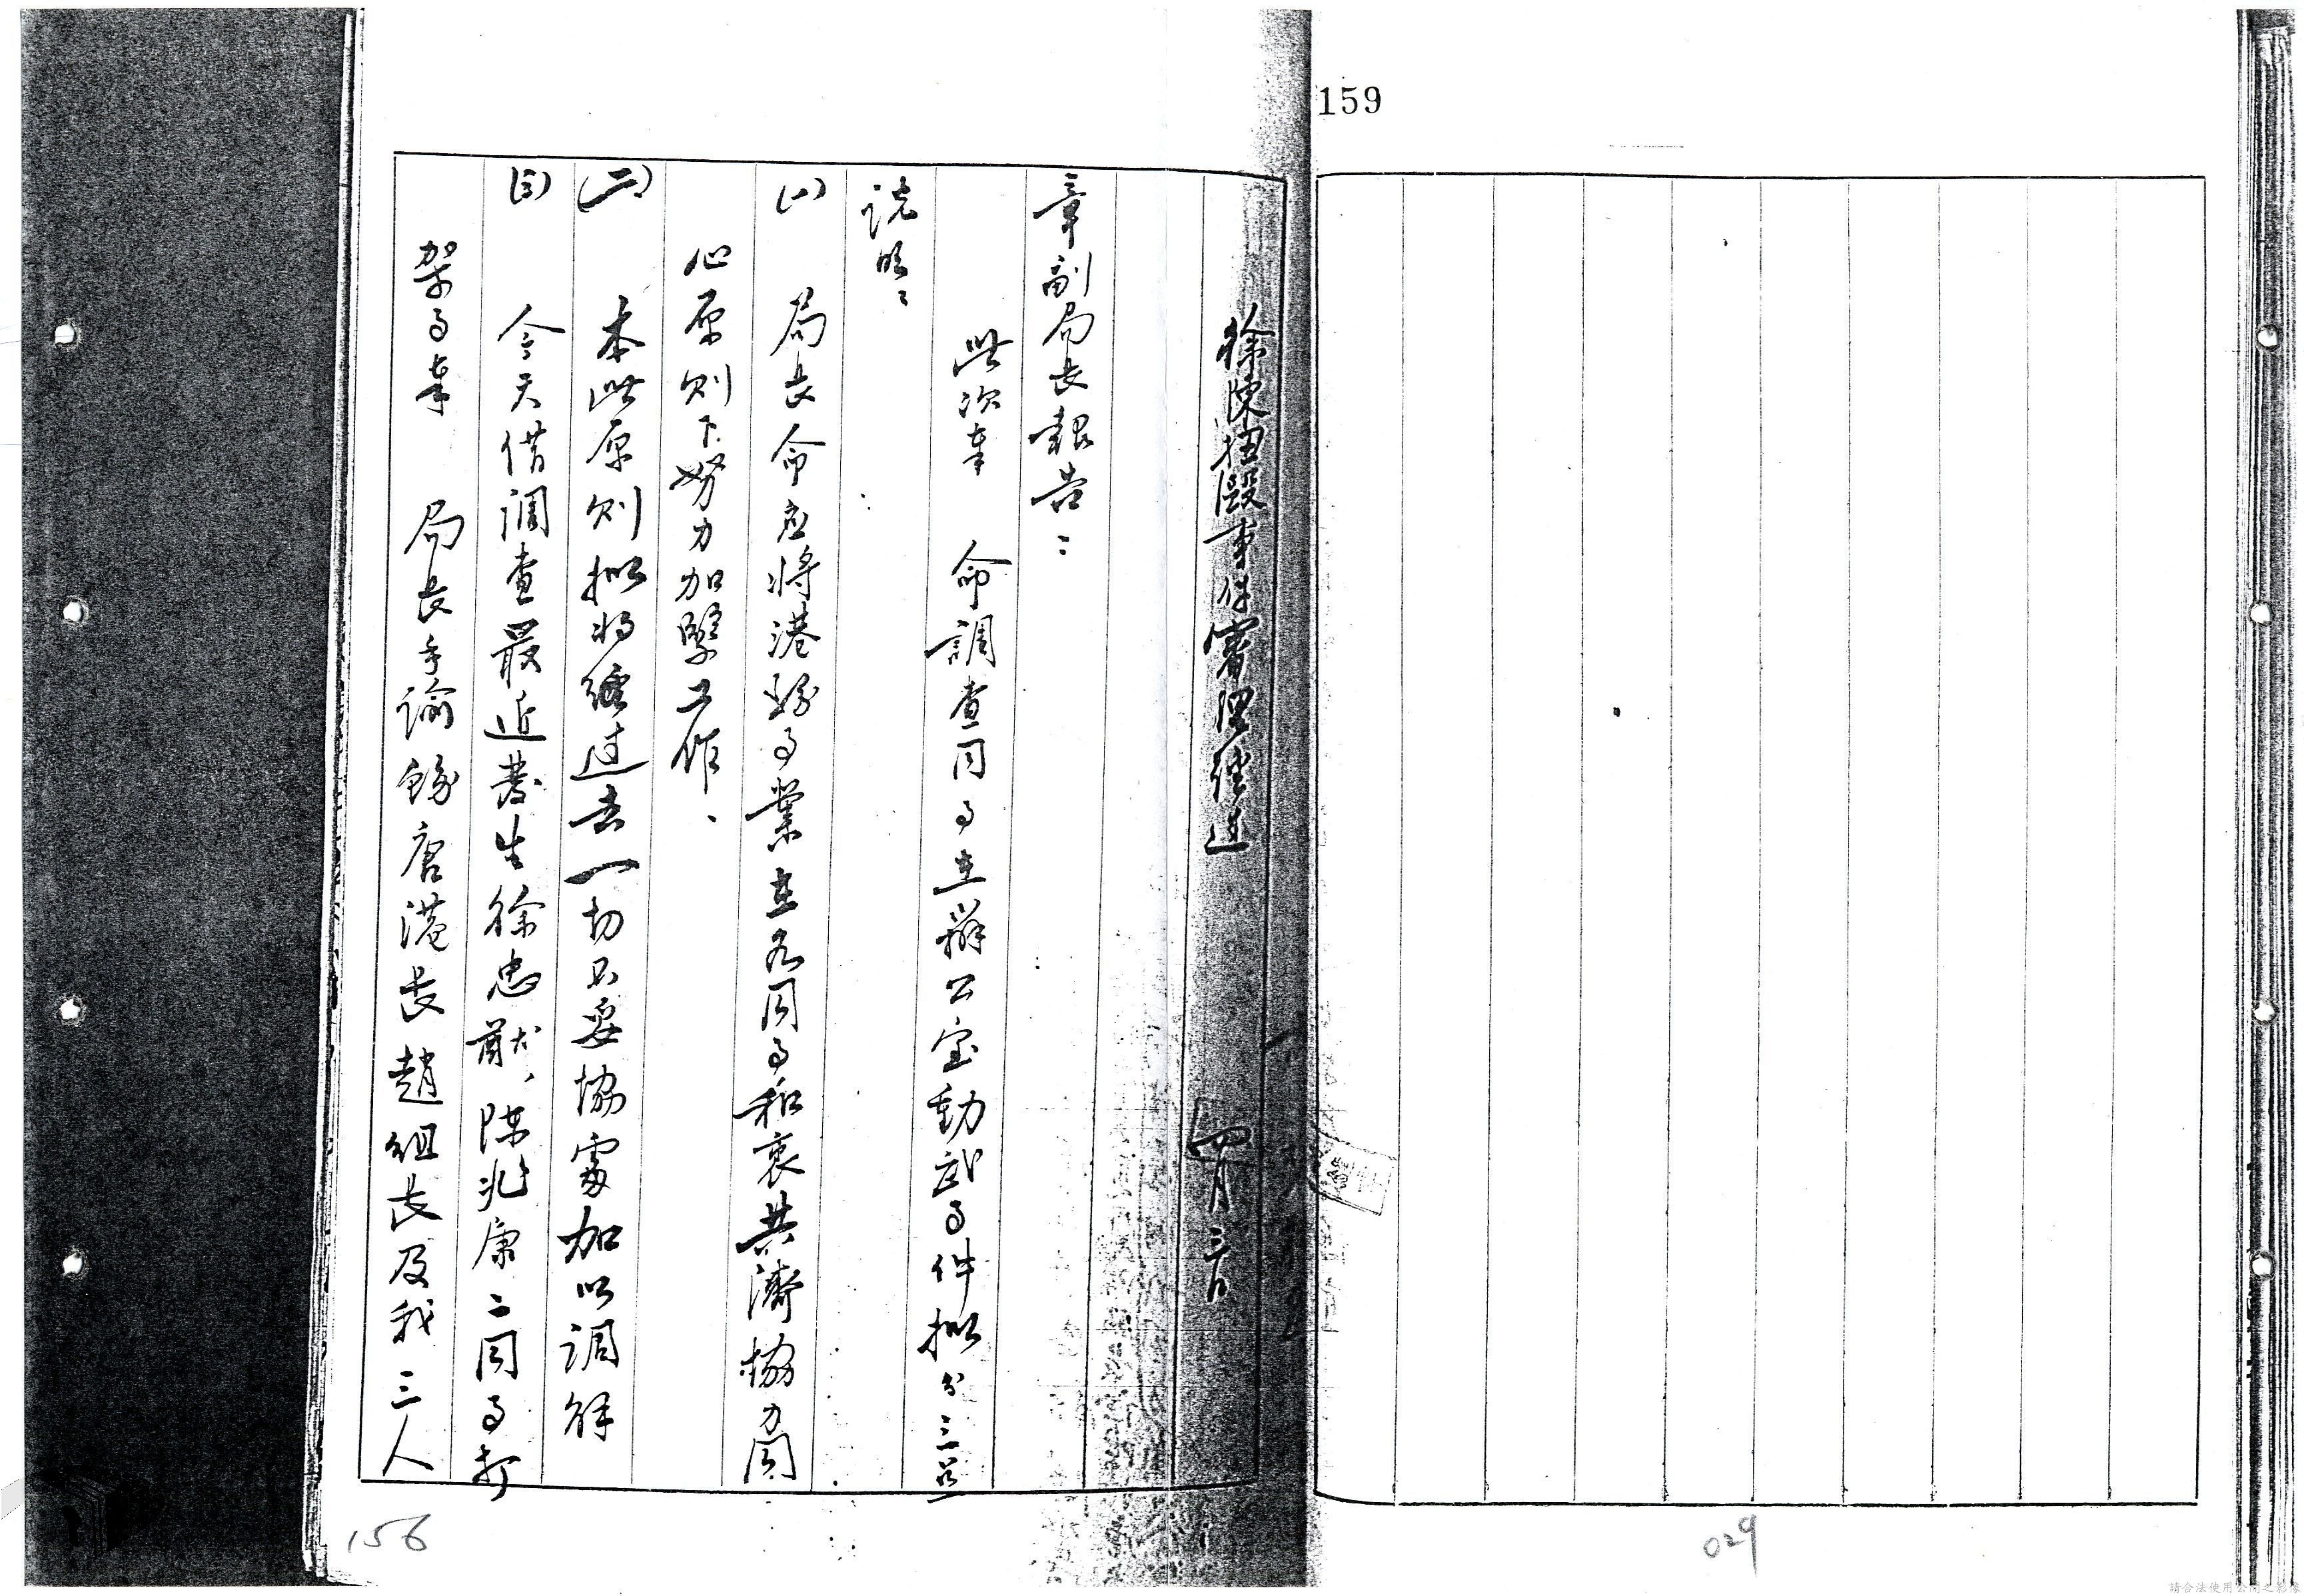 159
徐陳扭毆事件審理經過 四月三日
章副局長報告：
此次奉 命調查同事在辦公室動武事件擬分三點
說明：
(一) 局長命應將港務事業在各同事和衷共濟協力同
心原則下努力加緊工作、
(二) 本此原則擬將經过去一切不妥協處加以调解
(三) 今天借調查最近發生徐忠猷、陳兆康二同事打
架事奉 局長手諭飭唐港長趙組長及我三人
156
029
請合法使用公司之影像